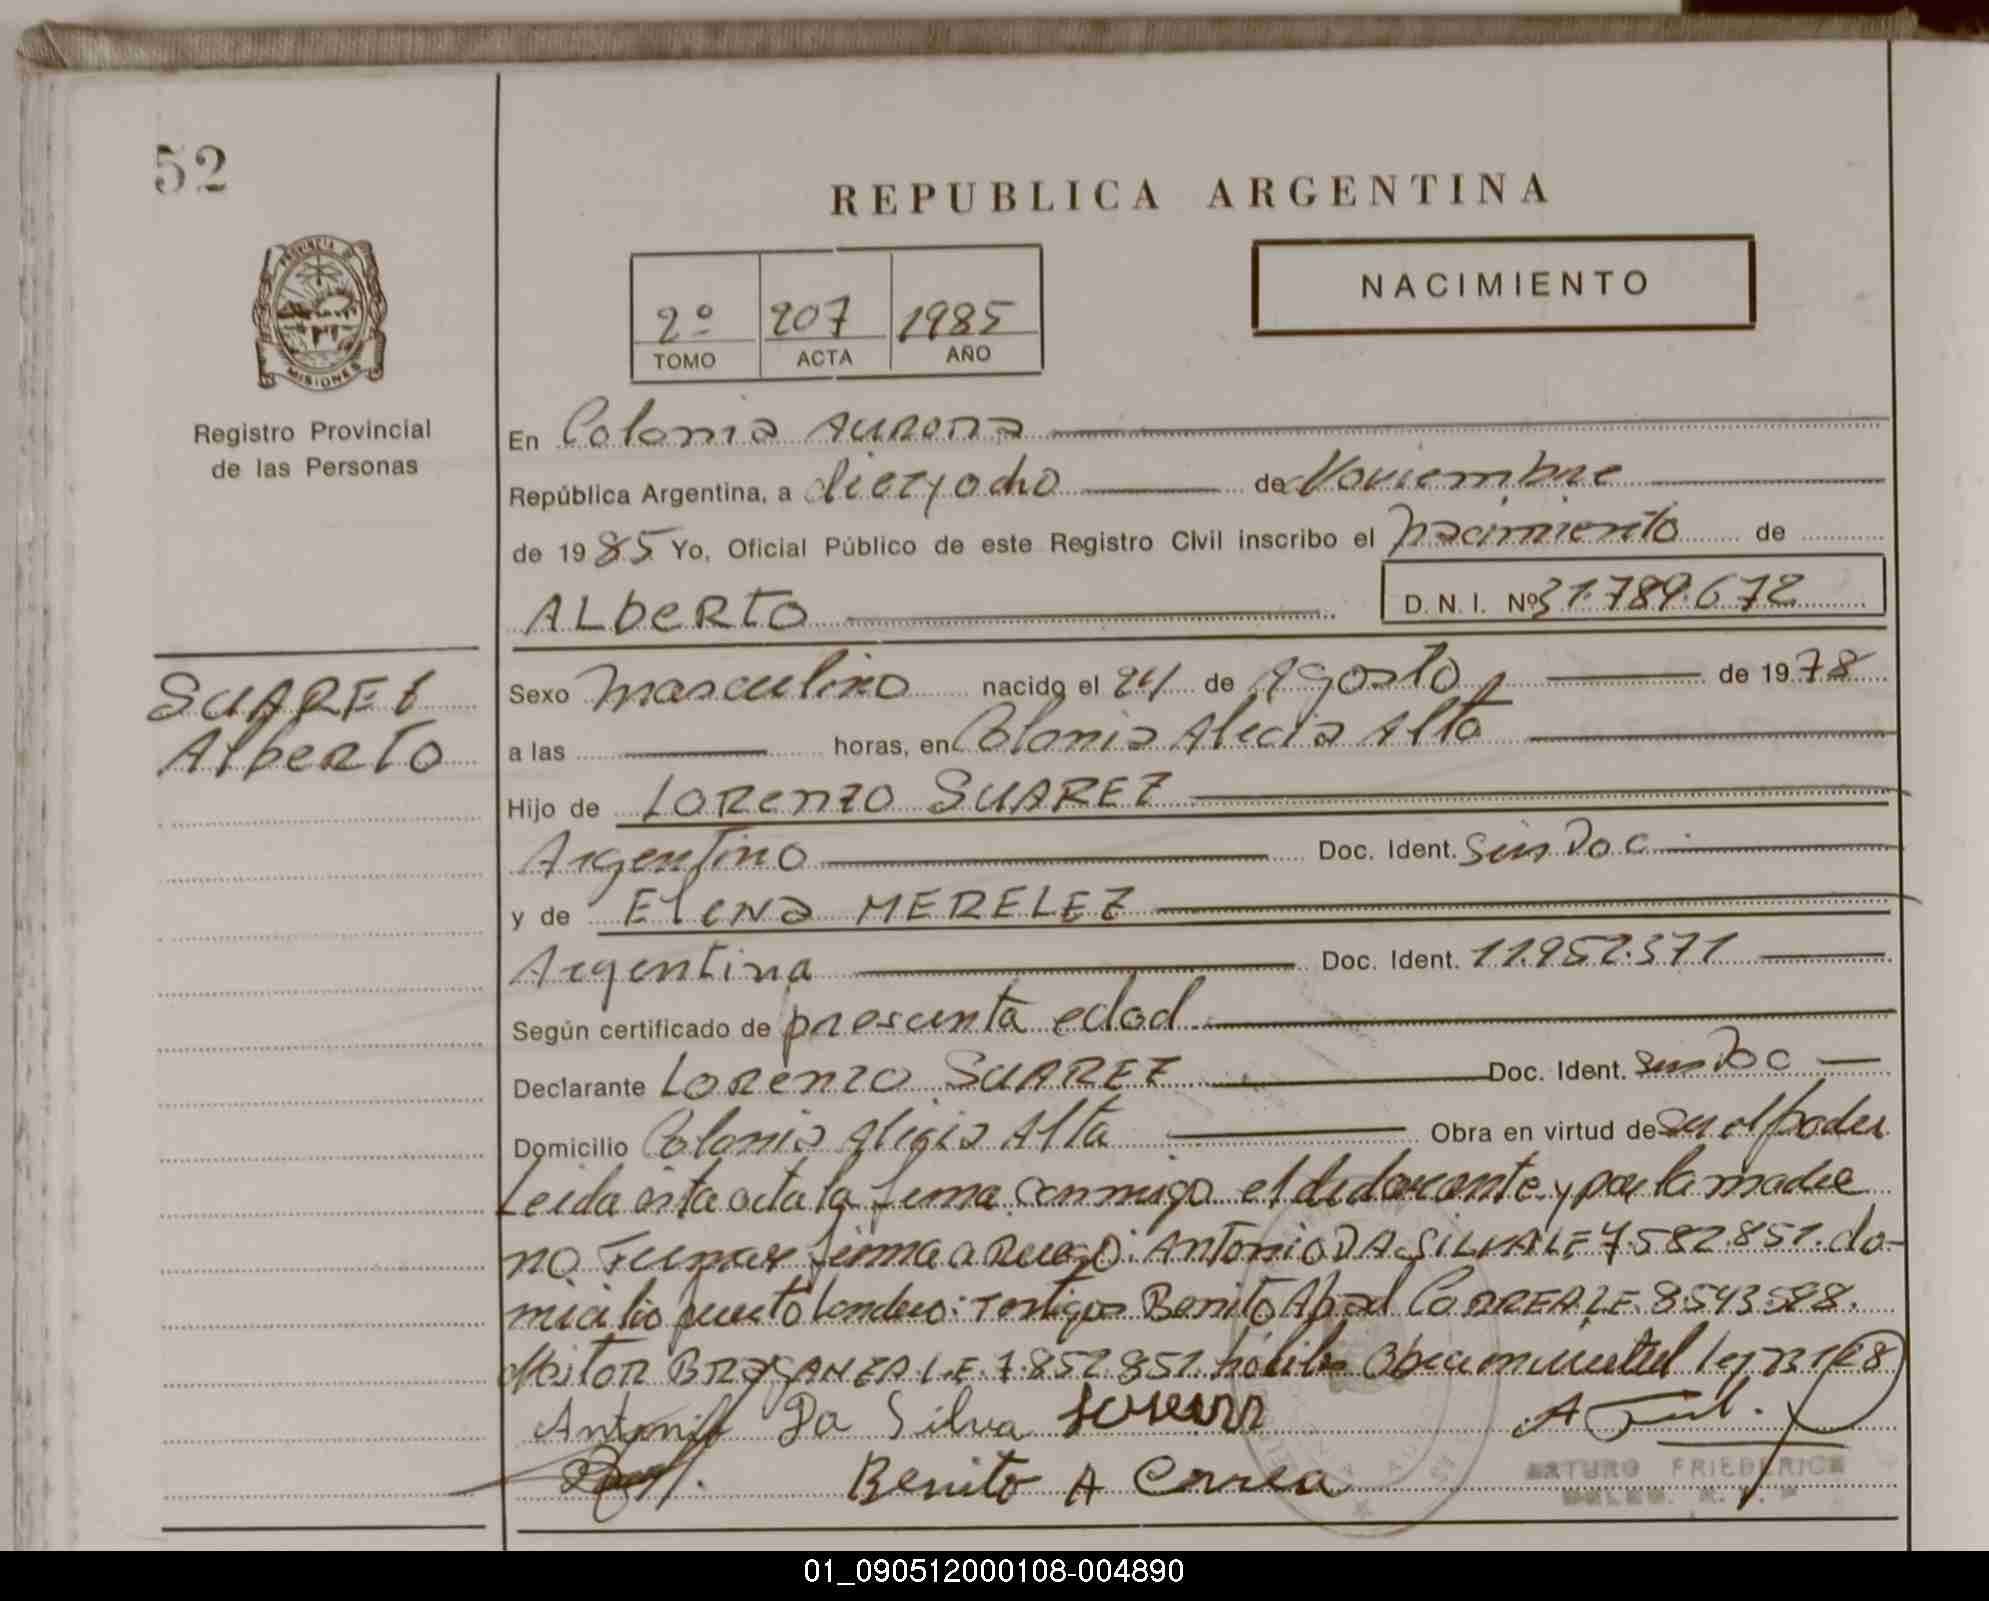 52
REPUBLICA ARGENTINA
PROVINCIA DE
MISIONES
2º 207 1985
TOMO ACTA AÑO
NACIMIENTO
Registro Provincial
de las Personas
En Colonia Aurora
República Argentina, a dieciocho de Noviembre
de 1985 Yo, Oficial Público de este Registro Civil inscribo el nacimiento de
ALbeRto D. N. I. Nº 31.789.672
SUAREZ
Alberto
Sexo masculino nacido el 24 de Agosto de 1978
a las horas, en Colonia Alecia Alta
Hijo de LORENZO SUAREZ
Argentino Doc. Ident. Sin Doc
y de Elena MERELEZ
Argentina Doc. Ident. 11.952.371
Según certificado de presunta edad
Declarante LORENZO SUAREZ Doc. Ident. sin Doc
Domicilio Colonia Alicia Alta Obra en virtud de
Leida esta acta la firma conmigo el declarante y por la madre
no Firmar firma a Ruego: Antonio DA SILVA LE 7.582.851. do-
micilio puerto Londero: Testigos Benito Abad CORREA LE 8543588.
BRAGANZA L.E. 7.852.851. habiles ley
Antonio Da Silva
Benito A Correa
ARTURO FRIEDERICH
01_090512000108-004890